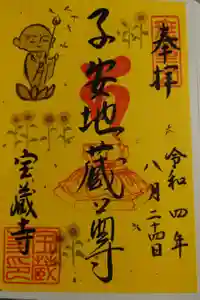 奉拝
令和四年
八月二十四日
子安地蔵尊
宝蔵寺